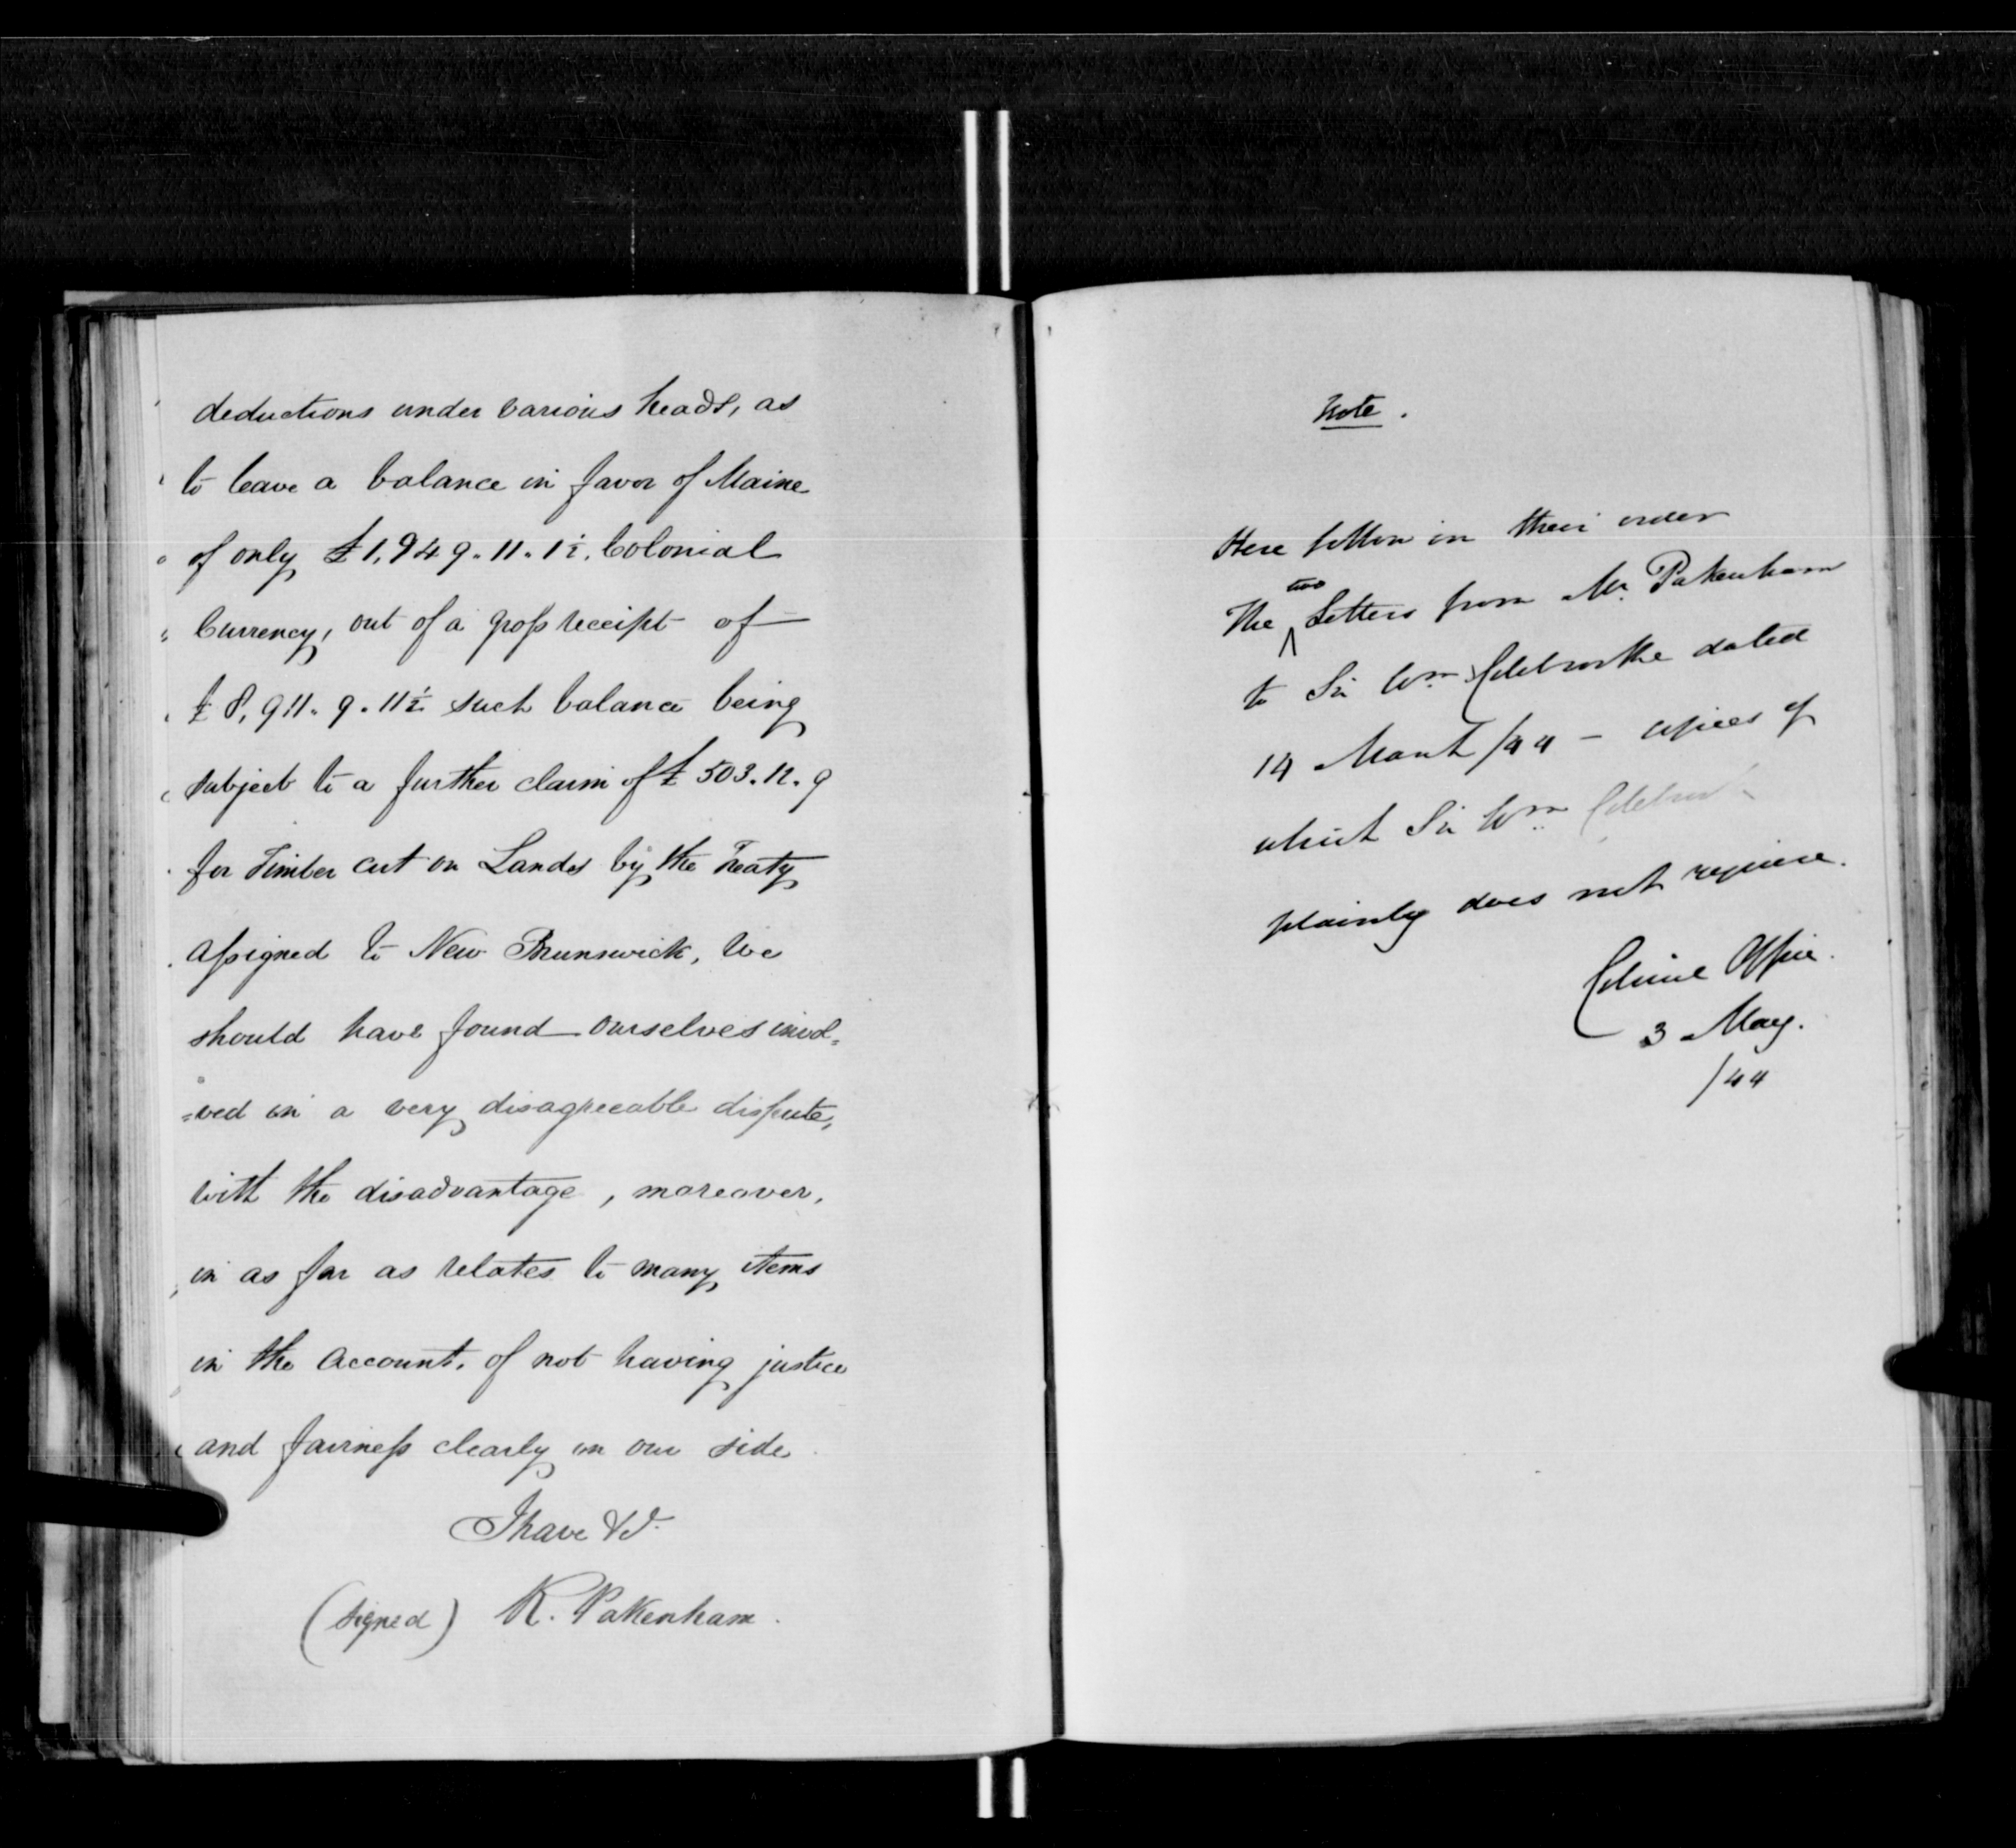 deductions under various heads, as
to leave a balance in favor of Maine
of only £1,949. 11. 1½. Colonial
Currency, out of a gross receipt of
£8,911. 9. 11½ such balance being
subject to a further claim of £503. 12. 9
for Timber cut on Lands by the Treaty
assigned to New Brunswick, We
should have found ourselves invol=
=ved in a very disagreeable dispute,
with the disadvantage, moreover,
in as far as relates to many items
in the Account, of not having justice
and fairness clearly on our side.
I have &c.
(signed) R. Pakenham.
Note.
Here follow in their order
The two Letters from Mr. Pakenham
to Sir Wm Colebrooke dated
14 March /44 - copies of
which Sir Wm. Colebrooke
plainly does not require.
Colonial Office.
3 May.
/44